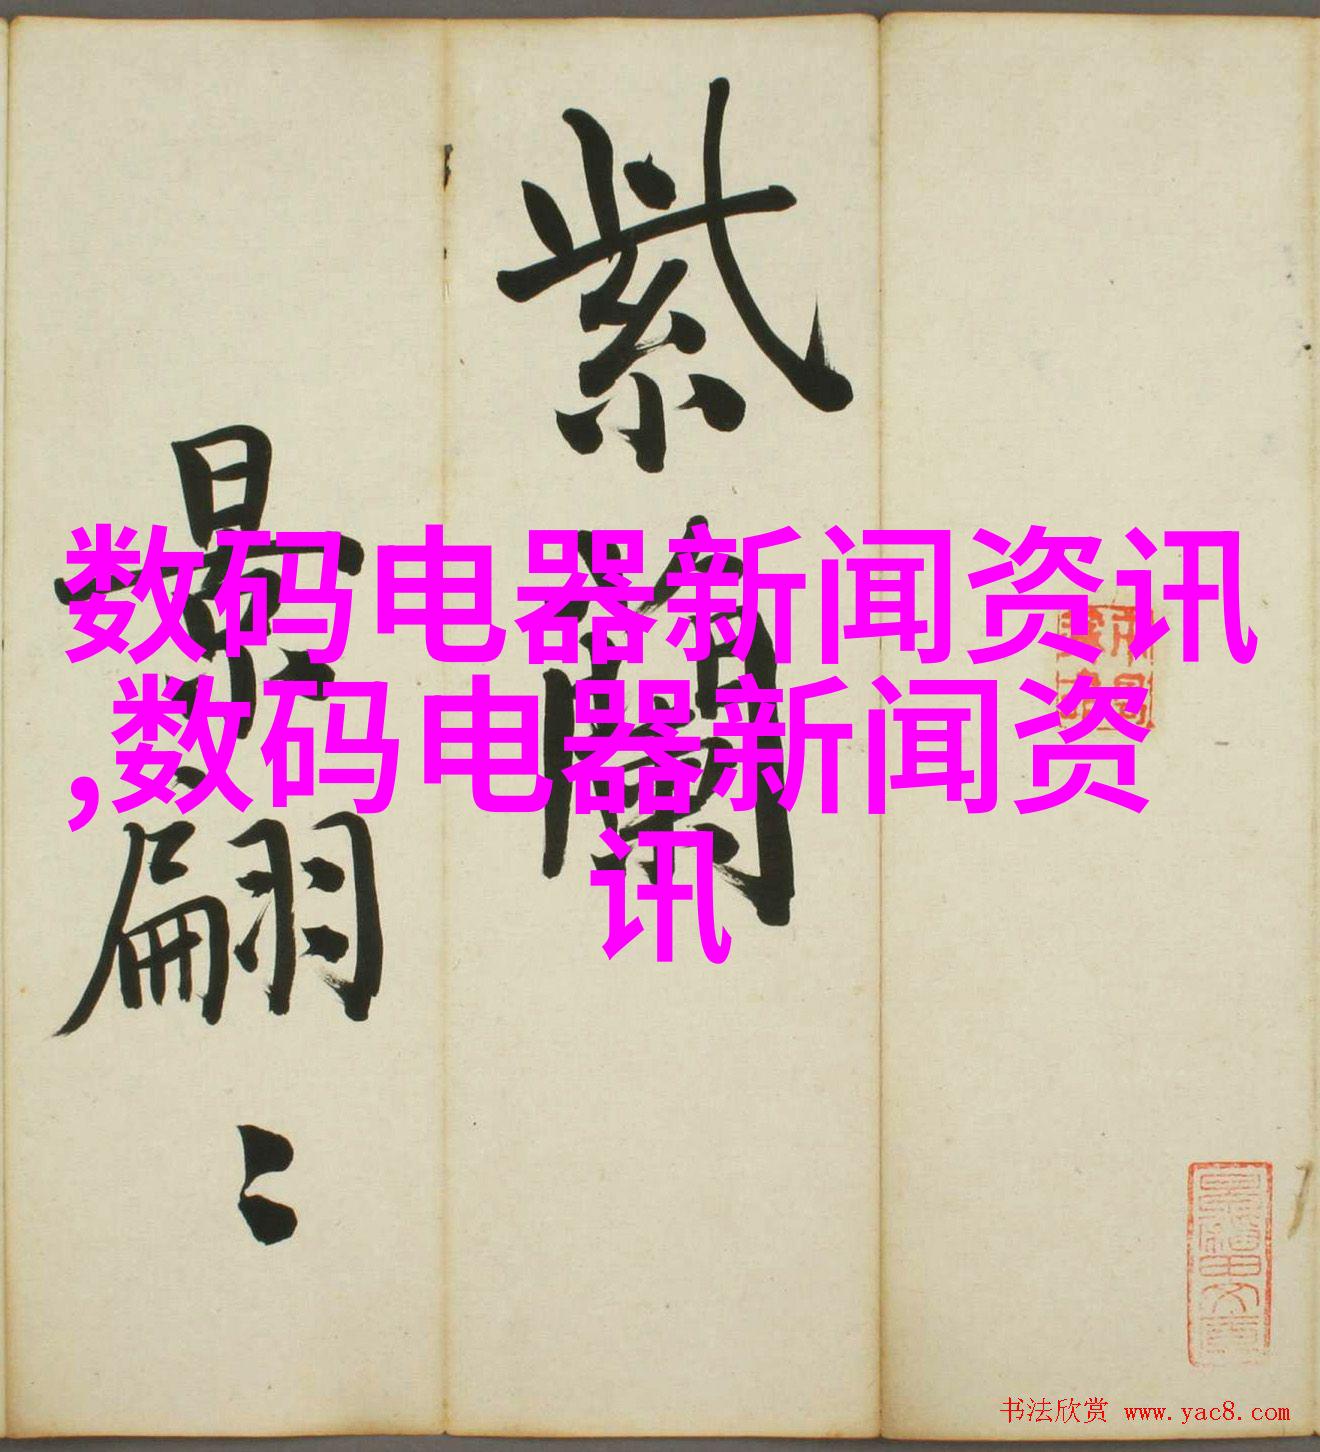 数码电器新闻资讯
,数码电器新闻资
讯
紫蘭
最翩々
书法欣赏 www.yac8.com